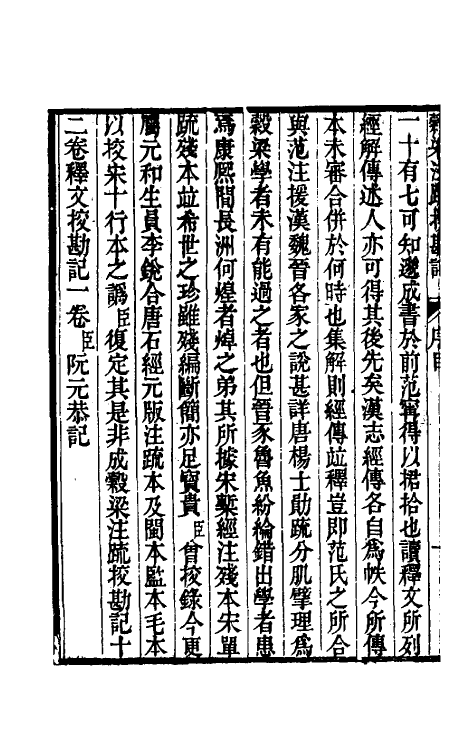 穀梁注疏挍勘記 序目
一十有七可知邈成書於前范甯得以捃拾也讀釋文所列
經解傳述人亦可得其後先矣漢志經傳各自爲帙今所傳
本未審合併於何時也集解則經傳竝釋豈即范氏之所合
與范注援漢魏晉各家之說甚詳唐楊士勛疏分肌擘理爲
穀梁學者未有能過之者也但晉豕魯魚紛綸錯出學者患
焉康熙間長洲何煌者焯之弟其所據宋槧經注殘本宋單
疏殘本竝希世之珍雖殘編斷簡亦足寶貴臣曾挍錄今更
屬元和生員李銳合唐石經元版注疏本及閩本監本毛本
以挍宋十行本之譌臣復定其是非成穀梁注疏挍勘記十
二卷釋文挍勘記一卷臣阮元恭記